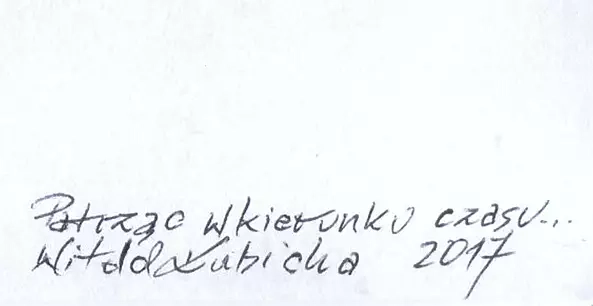 Patrząc w kierunku czasu...
Witold Łubicha 2017